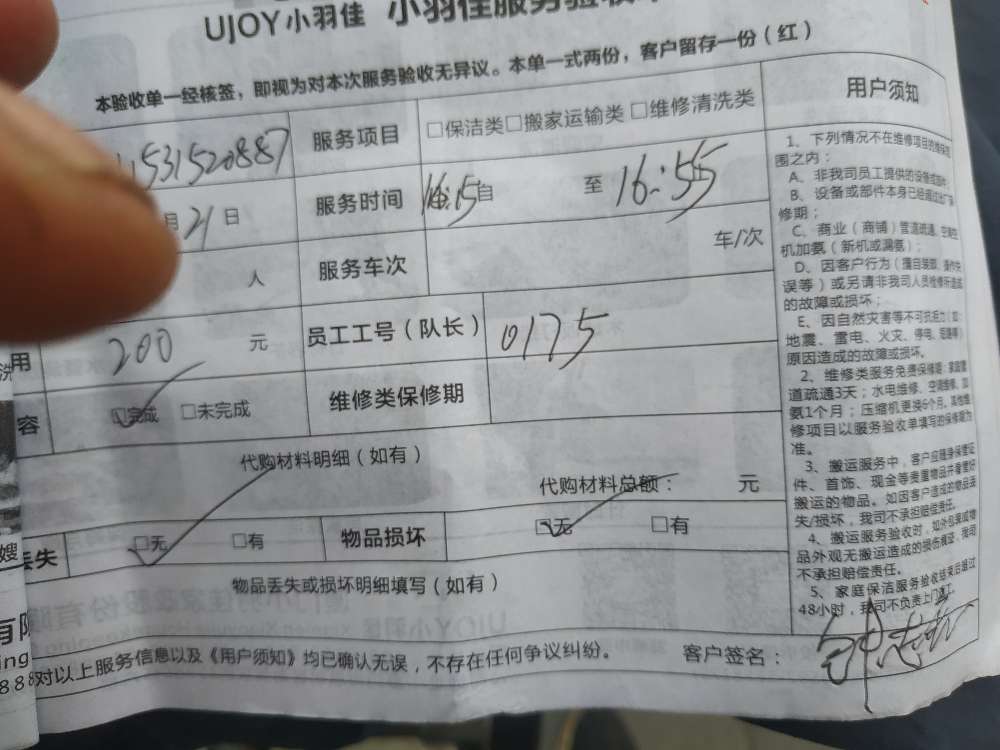 UJOY小羽佳 小羽佳服务验收单
本验收单一经核签，即视为对本次服务验收无异议。本单一式两份，客户留存一份（红）
1531520887 服务项目 □保洁类□搬家运输类 □维修清洗类
月21日 服务时间 16:15自 至 16:55
人 服务车次 车/次
用 200 元 员工工号（队长） 0175
容 □完成 □未完成 维修类保修期
代购材料明细（如有）
代购材料总额： 元
丢失 □无 □有 物品损坏 □无 □有
物品丢失或损坏明细填写（如有）
对以上服务信息以及《用户须知》均已确认无误，不存在任何争议纠纷。 客户签名：
用户须知
1、下列情况不在维修项目的维保范
围之内：
A、非我司员工提供的设备或部件；
B、设备或部件本身已经超过出厂保
修期；
C、商业（商铺）管道疏通，空调空
机加氨（新机或漏氨）；
D、因客户行为（擅自装卸、操作失
误等）或另请非我司人员维修所造成
的故障或损坏；
E、因自然灾害等不可抗拒力（如：
地震、雷电、火灾、停电、
原因造成的故障或损坏。
2、维修类服务免费保修期：家庭管
道疏通3天；水电维修、空调维修、加
氨1个月；压缩机更换6个月，其他维
修项目以服务验收单填写的保修期为
准。
3、搬运服务中，客户应随身保管证
件、首饰、现金等贵重物品并看管好
搬运的物品。如因客户造成的物品丢
失/损坏，我司不承担赔偿责任。
4、搬运服务验收时，如外包装或物
品外观无搬运造成的损伤痕迹，我司
不承担赔偿责任。
5、家庭保洁服务验收结束后超过
48小时，我司不负责上门返工。
洗
嫂
有限
ing
888